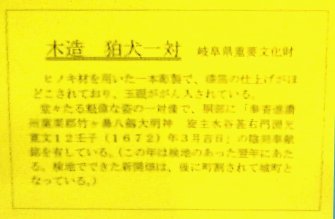 木造 狛犬一対 岐阜県重要文化財
ヒノキ材を用いた一本彫製で、漆箔の仕上げがほ
どこされており、玉眼ががん入されている。
堂々たる魁偉な姿の一対像で、胴部に「奉寄進濃
州葉栗郡竹ヶ鼻八剱大明神 施主木谷甚右門源光
寛文12壬子(1672)年3月吉日」の陰刻奉献
銘を有している。(この年は検地のあった翌年にあた
る。検地でできた新開畑は、後に町割されて城町と
なっている。)